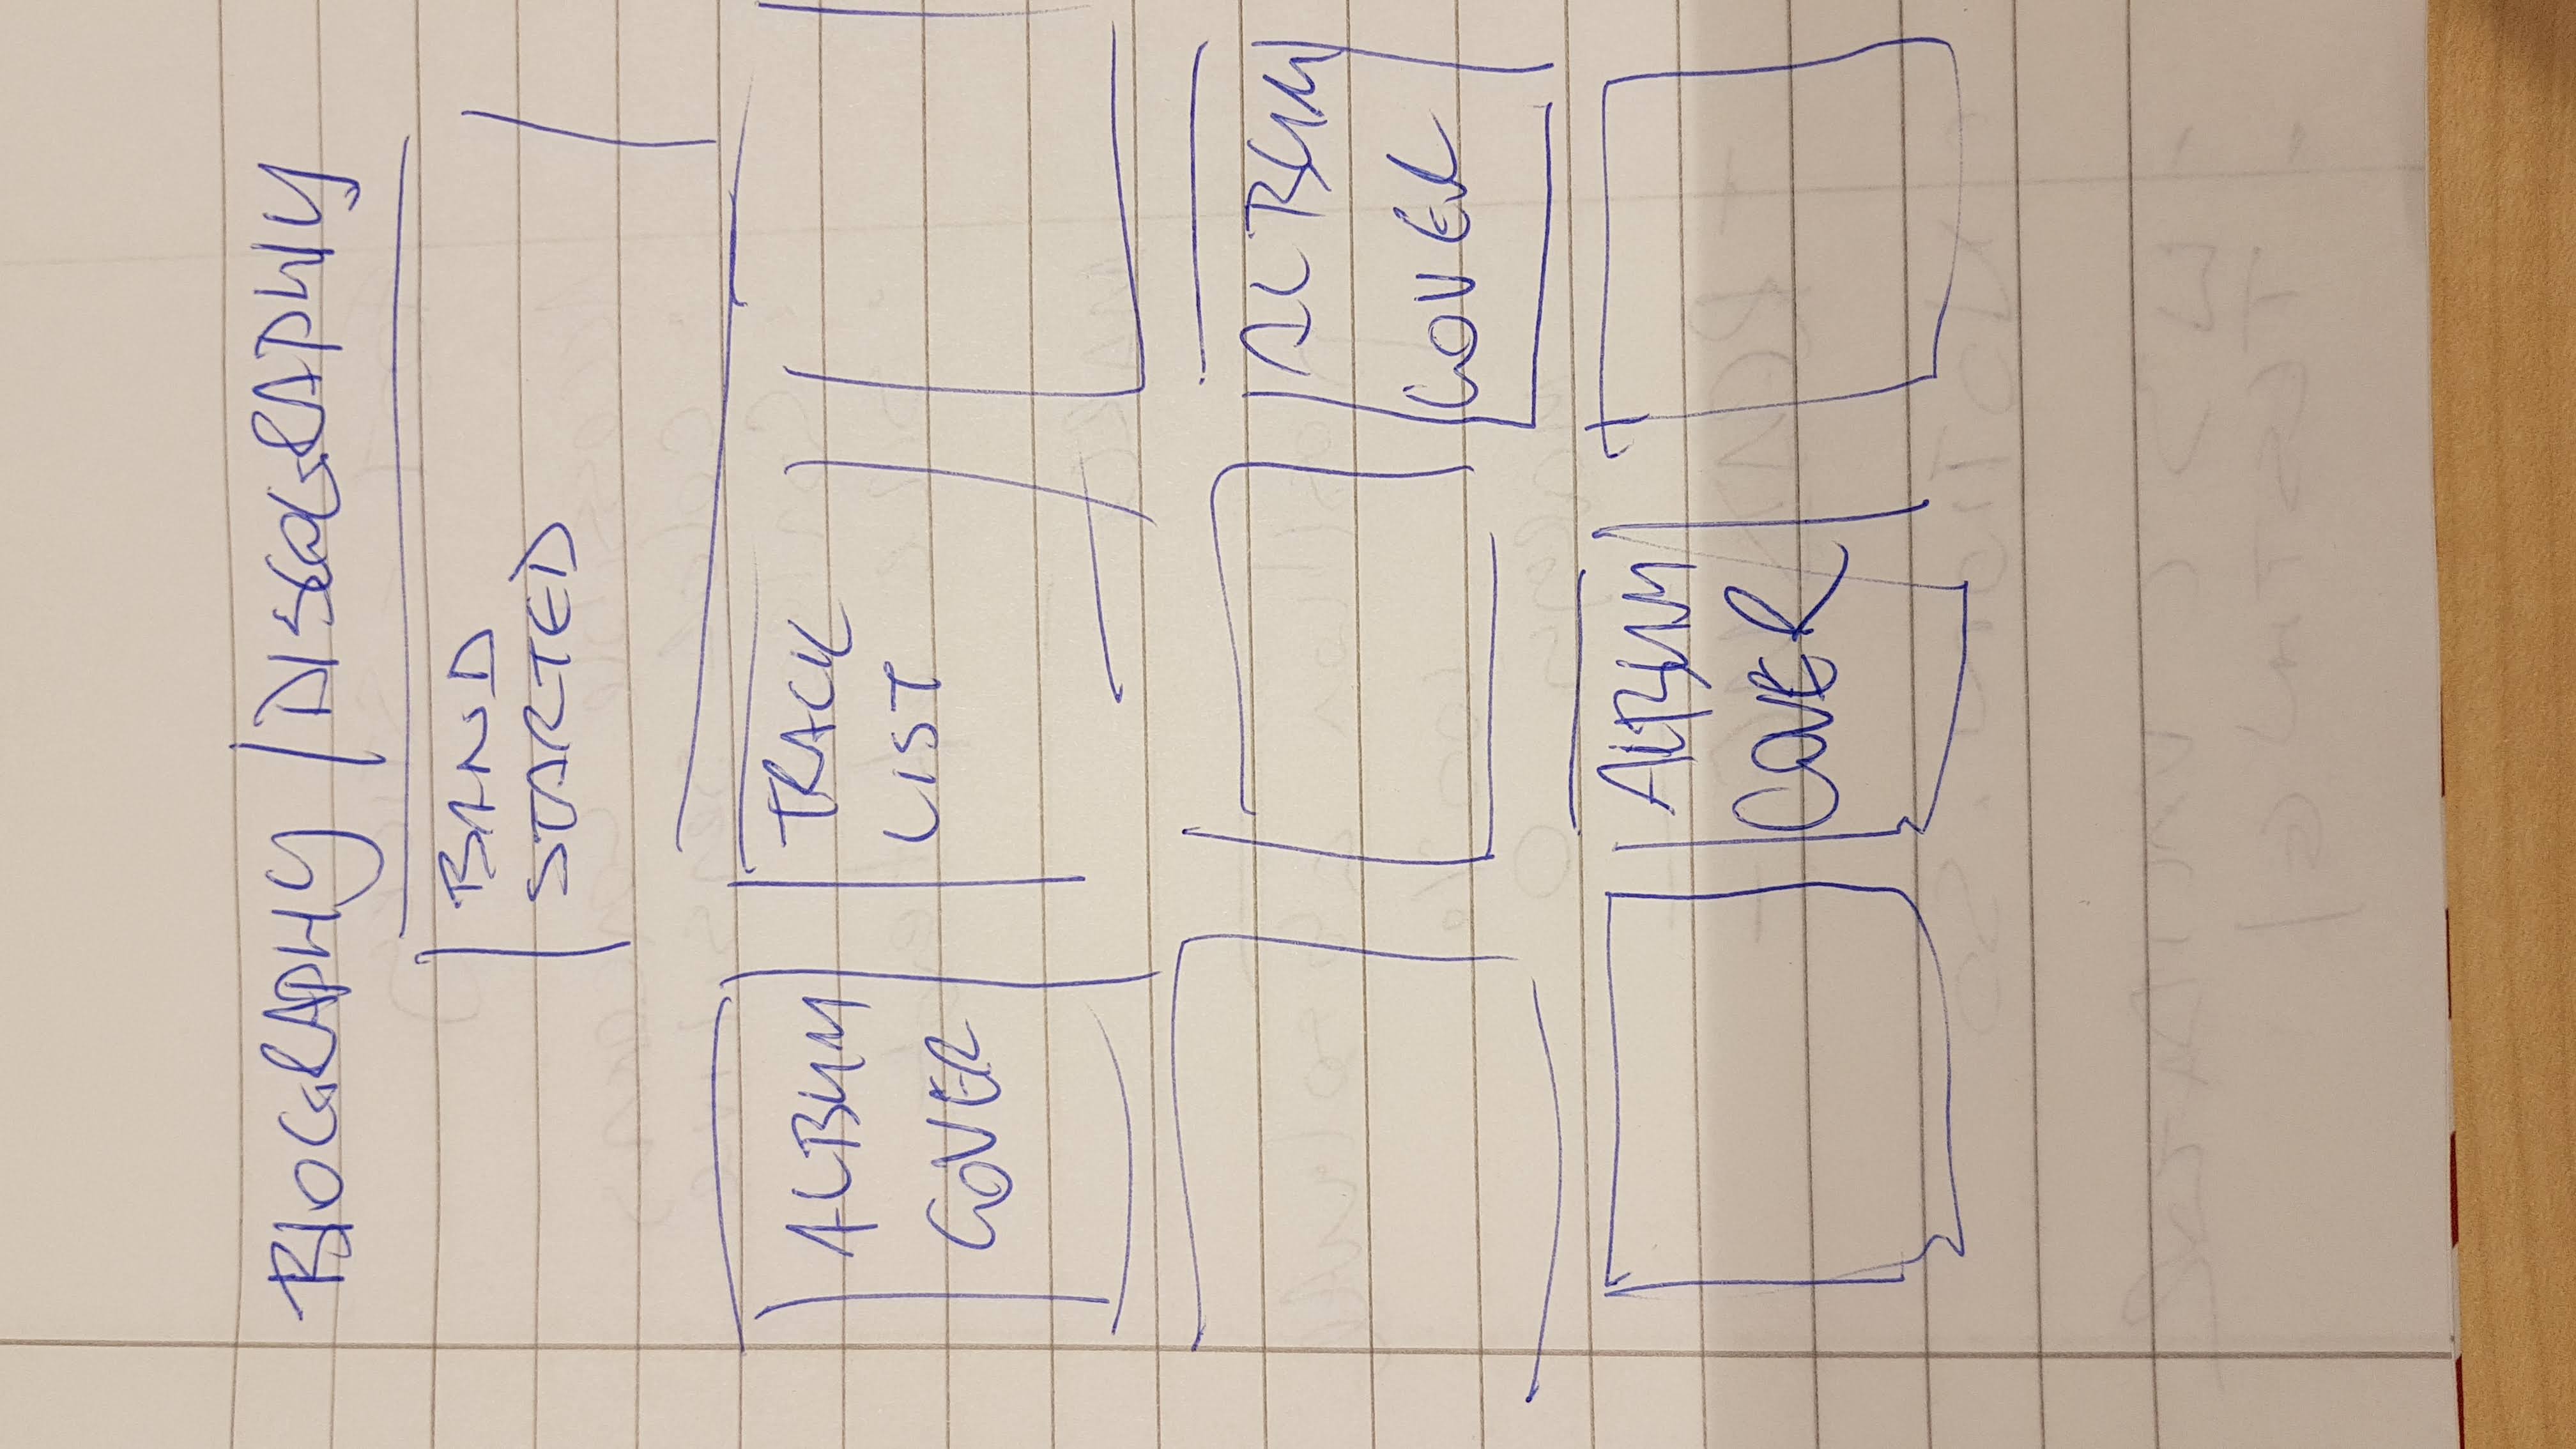 BIOGRAPHY / DISCOGRAPHY
BAND
STARTED
ALBUM
COVER
TRACK
LIST
ALBUM
COVER
ALBUM
COVER